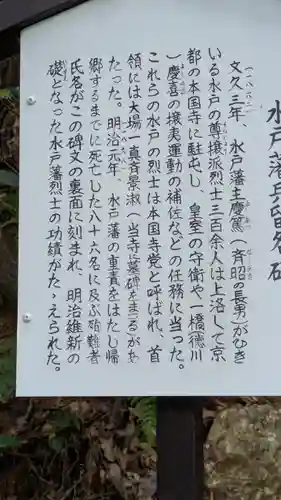 水戸藩兵留名碑
文久三年、水戸藩主慶篤(斉昭の長男)がひき
(一八六三)
いる水戸の尊攘派烈士三百余人は上洛して京
都の本国寺に駐屯し、皇室の守衛や一橋(徳川
)慶喜の攘夷運動の補佐などの任務に当った。
これらの水戸の烈士は本国寺党と呼ばれ、首
領には大場一真斉景淑(当寺に墓碑をまつる)がお
たった。明治元年、水戸藩の重責をはたし帰
郷するまでに死亡した八十六名に及ぶ殉難者
氏名がこの碑文の裏面に刻まれ、明治維新の
礎となった水戸藩烈士の功績がたゝえられた。